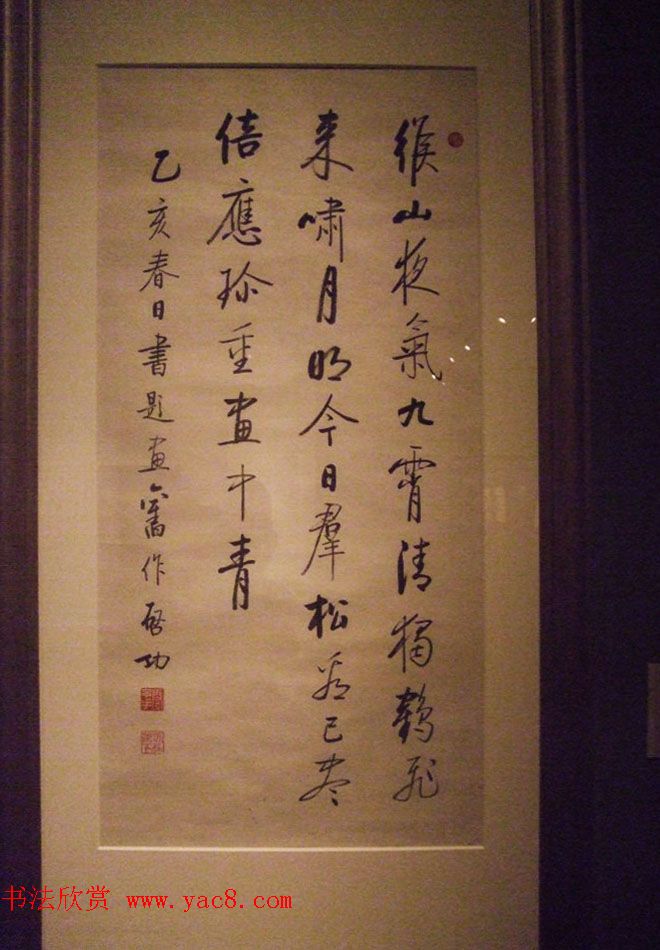 緱山夜氣九霄清獨鶴飛
來嘯月明今日羣松已盡
倍應珍重畫中青
乙亥春日書題畫舊作啟功
书法欣赏 www.yac8.com